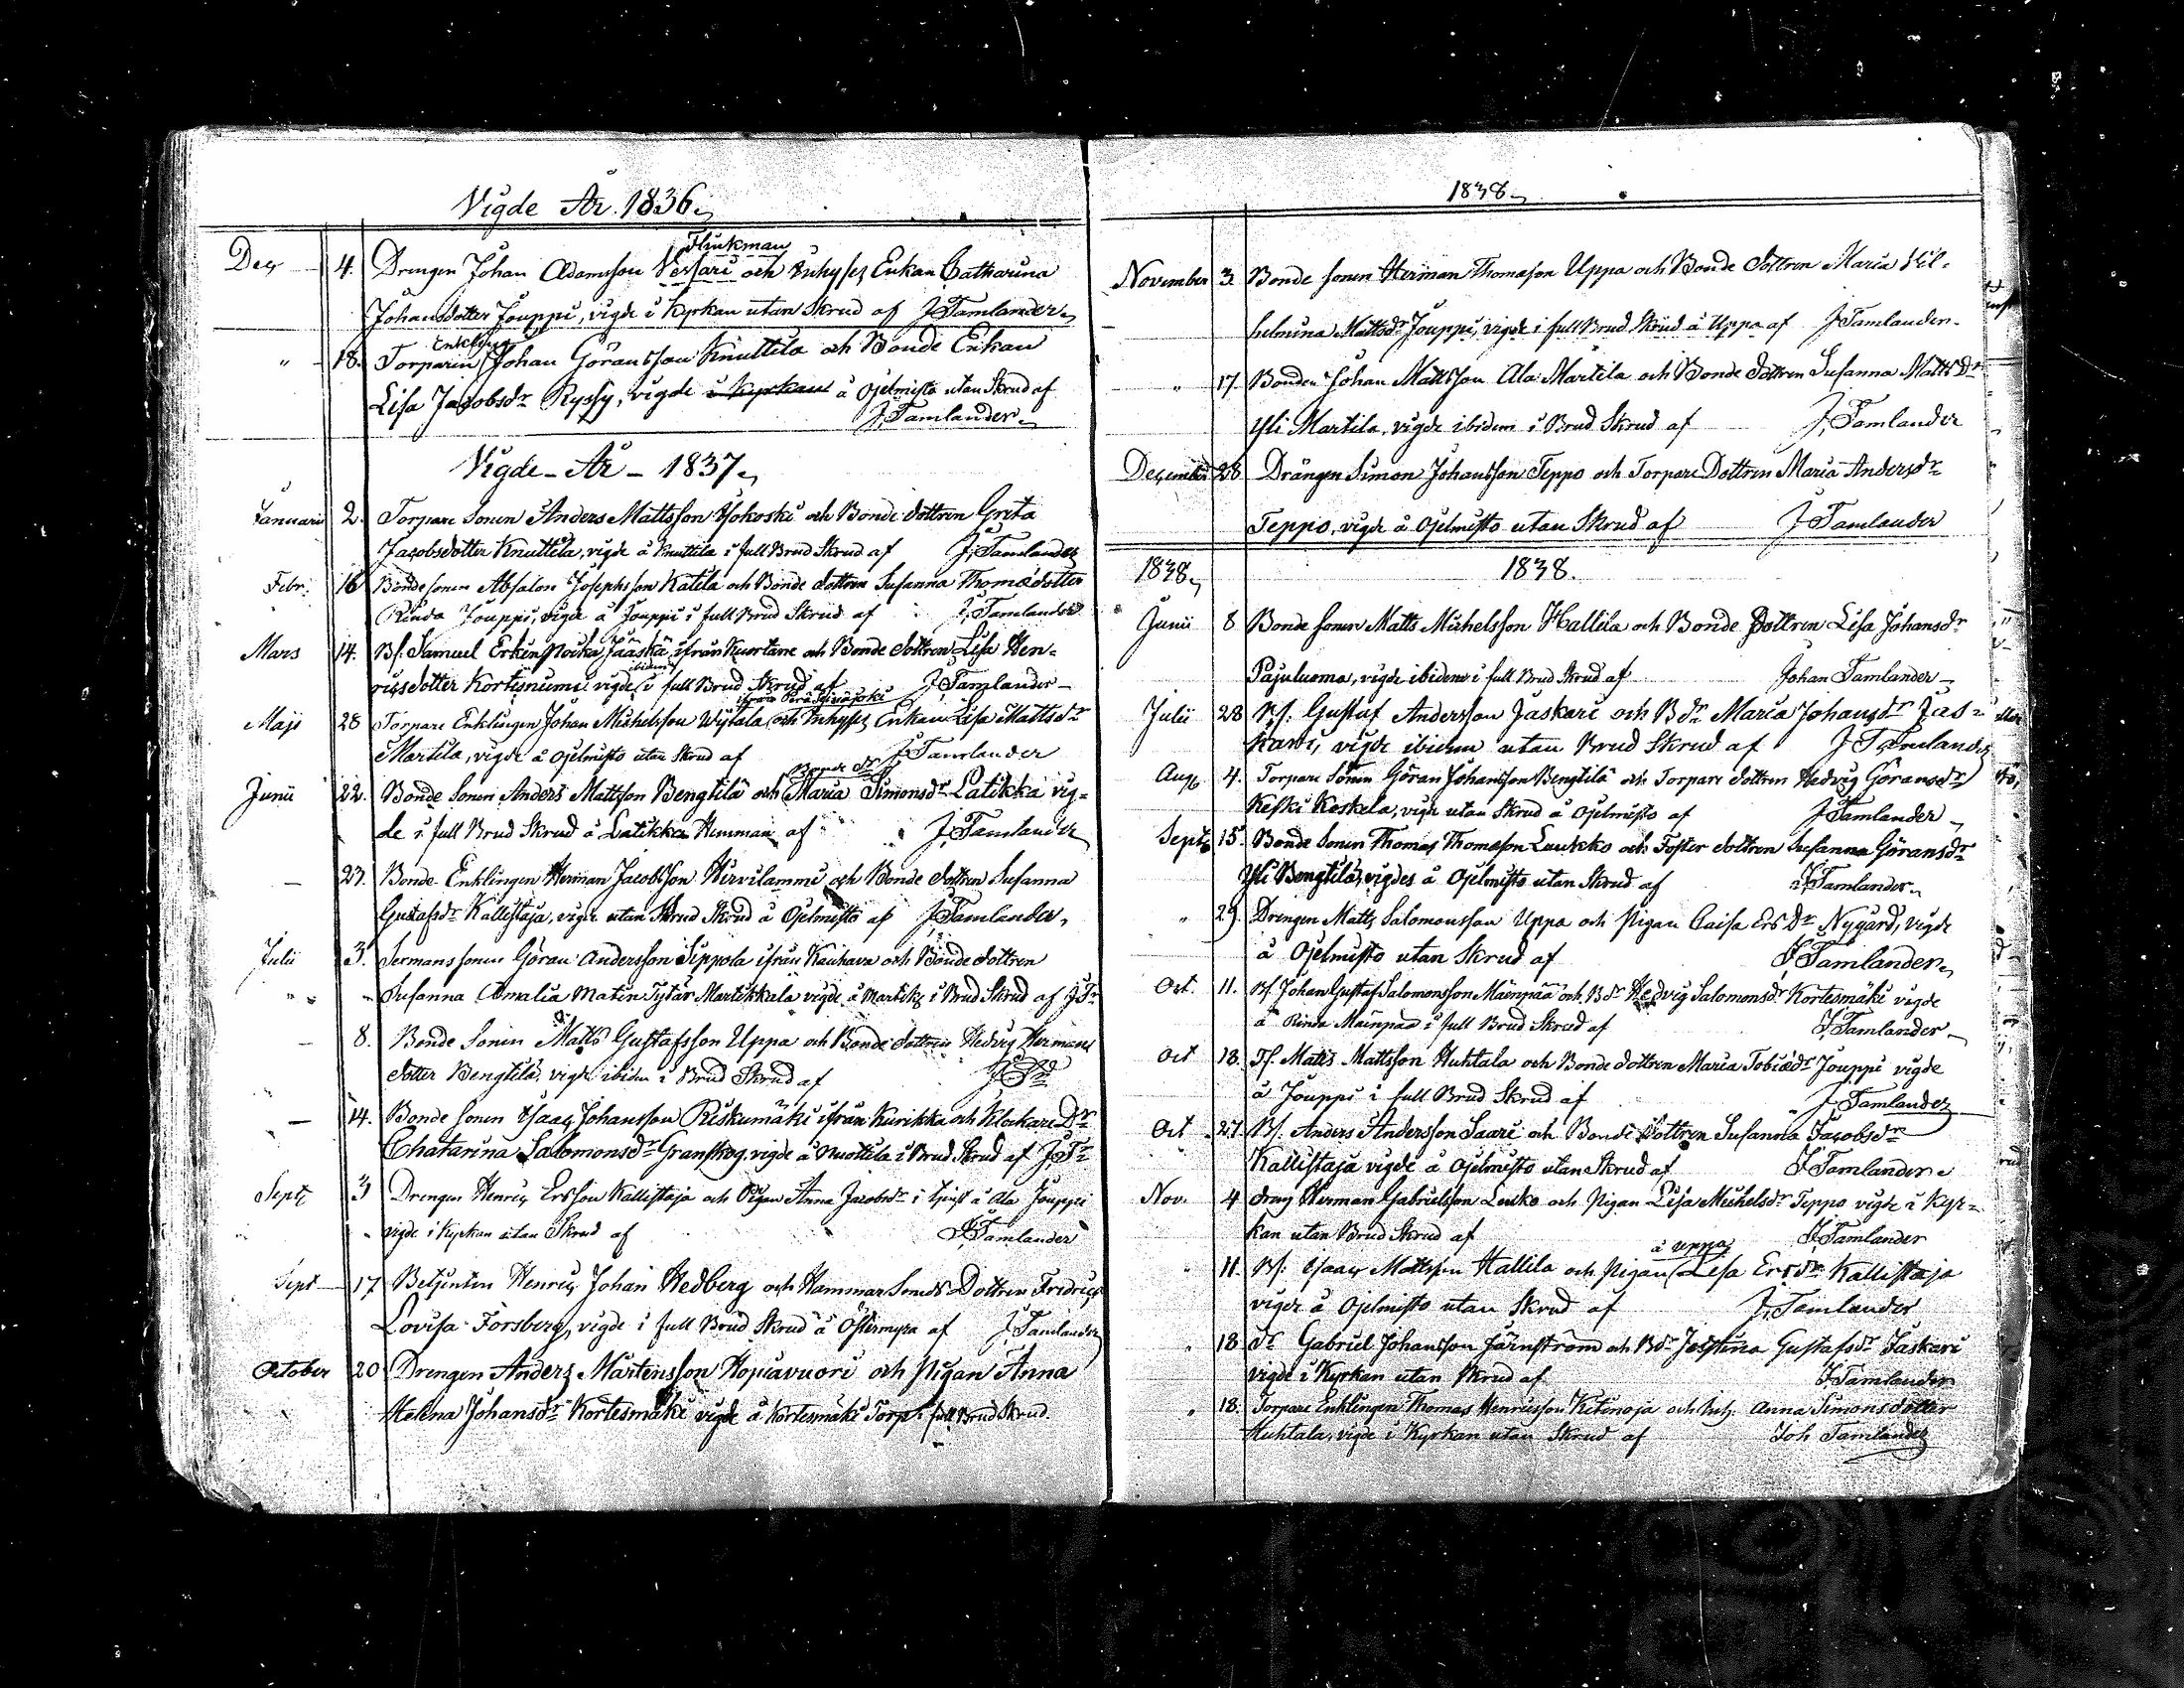 Vigde År 1836.
Flinkman
Dec 4. Drengen Johan Adamsson Vessari och Inhyses Enkan Catharina
Johansdotter Jouppi, vigde i Kyrkan utan Skrud af J. Tamlander
Enkling
" 18. Torparin Johan Göransson Knuttila och Bonde Enkan
Lisa Jacobsdr Ryssy, vigde i Kyrkan å Ojelmisto utan Skrud af
J. Tamlander
Vigde År 1837.
Januarii 2. Torpare Sonen Anders Mattsson Jokoski och Bonde dottren Greta
Jacobsdotter Knuttila, vigde å Knuttila i full Brud Skrud af J. Tamlander
Febr. 16 Bonde sonen Absalon Josephsson Katila och Bonde dottren Susanna Thomædotter
Rinda Jouppi, vigde å Jouppi i full Brud Skrud af J. Tamlander
Mars 14. Bs. Samuel Erkin Poika Jääskä ifrån Kuortane och Bonde dottren Lisa Hen-
ibidem
ricsdotter Kortesnumi vigde i full Brud Skrud af J. Tamlander
ifrån Perä Seinäjoki
Maji 28 Torpare Enklingen Johan Michelsson Wytala och Inhyses Enkan Lisa Mattsdr
Martila, vigde å Ojelmisto utan Skrud af J. Tamlander
Bonde dr
Junii 22. Bonde Sonen Anders Mattsson Bengtilä och Maria Simonsdr Latikka vig-
de i full Brud Skrud å Latikka Hemman af J. Tamlander
— 23. Bonde Enklingen Herman Jacobsson Hirvilammi och Bonde dottren Susanna
Gustafsdr Kallistaja, vigde utan Skrud Skrud å Ojelmisto af J. Tamlander
Julii 3. Sermans sonen Göran Andersson Sippola ifrån Kauhava och Bonde dottren
" " Susanna Amalia Matin Tytär Martikkala vigde å Martik: i Brud Skrud af J. Tr
— 8. Bonde Sonen Matts Gustafsson Uppa och Bonde dottren Hedvig Hermans
dotter Bengtilä, vigde ibidem i Brud Skrud af
— 14. Bonde sonen Isaac Johansson Riskumäki ifrån Kurikka och Klockare Dr
Chatarina Salomonsdr Granskog, vigde å Nuottila i Brud Skrud af J. Tr
Septr 3 Drengen Henric Ersson Kallistaja och Pigan Anna Jacobsdr i tjenst å Ala Jouppi
vigde i Kyrkan utan Skrud af J. Tamlander
Sept 17 Betjenten Henric Johan Hedberg och Hammar Smeds Dottren Fredrica
Lovisa Forsberg, vigde i full Brud Skrud å Östermyra af J. Tamlander
October 20 Drengen Anders Mårtensson Hopiavuori och Pigan Anna
Helena Johansdr Kortesmäki vigde å Kortesmäki Torp i full Brud Skrud
1838.
November 3. Bonde sonen Herman Thomasson Uppa och Bonde dottren Maria Vil-
helmina Mattsdr Jouppi, vigde i full Brud Skrud å Uppa af J. Tamlander
" 17. Bonden Johan Mattsson Ala Martila och Bonde dottren Susanna Matts Dr
Yli Martila, vigde ibidem i Brud Skrud af J. Tamlander
December 28 Drängen Simon Johansson Teppo och Torpare Dottren Maria Andersdr
Teppo, vigde å Ojelmisto utan Skrud af J. Tamlander
1838. 1838.
Junii 8 Bonde sonen Matts Michelsson Hallila och Bonde Dottren Lisa Johansdr
Pajuluoma, vigde ibidem i full Brud Skrud af Johan Tamlander
Julii 28 Bs. Gustaf Andersson Jaskari och Bdr Maria Johansdr Jas-
kari, vigde ibidem utan Brud Skrud af J. Tamlander
Aug 4. Torpare Sonen Göran Johansson Bengtilä och Torpare dottren Hedvig Göransdr
Keski Koskela, vigde utan Skrud å Ojelmisto af J. Tamlander
Septr 15. Bonde Sonen Thomas Thomasson Luukko och Foster dottren Susanna Göransdr
Yli Bengtilä, vigdes å Ojelmisto utan Skrud af J. Tamlander
" 29. Drengen Matts Salomonsson Uppa och Pigan Caisa Ers Dr Nygård, vigde
å Ojelmisto utan Skrud af J. Tamlander
Oct. 11. Bs. Johan Gustaf Salomonsson Mäenpää och Bdr Hedvig Salomonsdr Kortesmäki vigde
å Rinda Mäinpää i full Brud Skrud af J. Tamlander
Oct 18. Ts. Matts Mattsson Huhtala och Bonde dottren Maria Tobiædr Jouppi vigde
å Jouppi i full Brud Skrud af J. Tamlander
Oct 27. Bs. Anders Andersson Saari och Bonde dottren Susanna Jacobsdr
Kallistaja vigde å Ojelmisto utan Skrud af J. Tamlander
Nov. 4 dreng Herman Gabrielsson Louko och Pigan Lisa Michelsdr Teppo vigde i Kyr-
kan utan Brud Skrud af J. Tamlander
å Uppa
11. Bs. Isaac Mattsson Hallila och Pigan Lisa Ersdr Kallistaja
vigde å Ojelmisto utan Skrud af J. Tamlander
" 18 dr Gabriel Johansson Järnström och Bdr Justina Gustafsdr Jaskari
vigde i Kyrkan utan Skrud af J. Tamlander
" 18. Torpare Enklingen Thomas Henricsson Ketinoja och Inh. Anna Simonsdotter
Huhtala, vigde i Kyrkan utan Skrud af Joh Tamlander